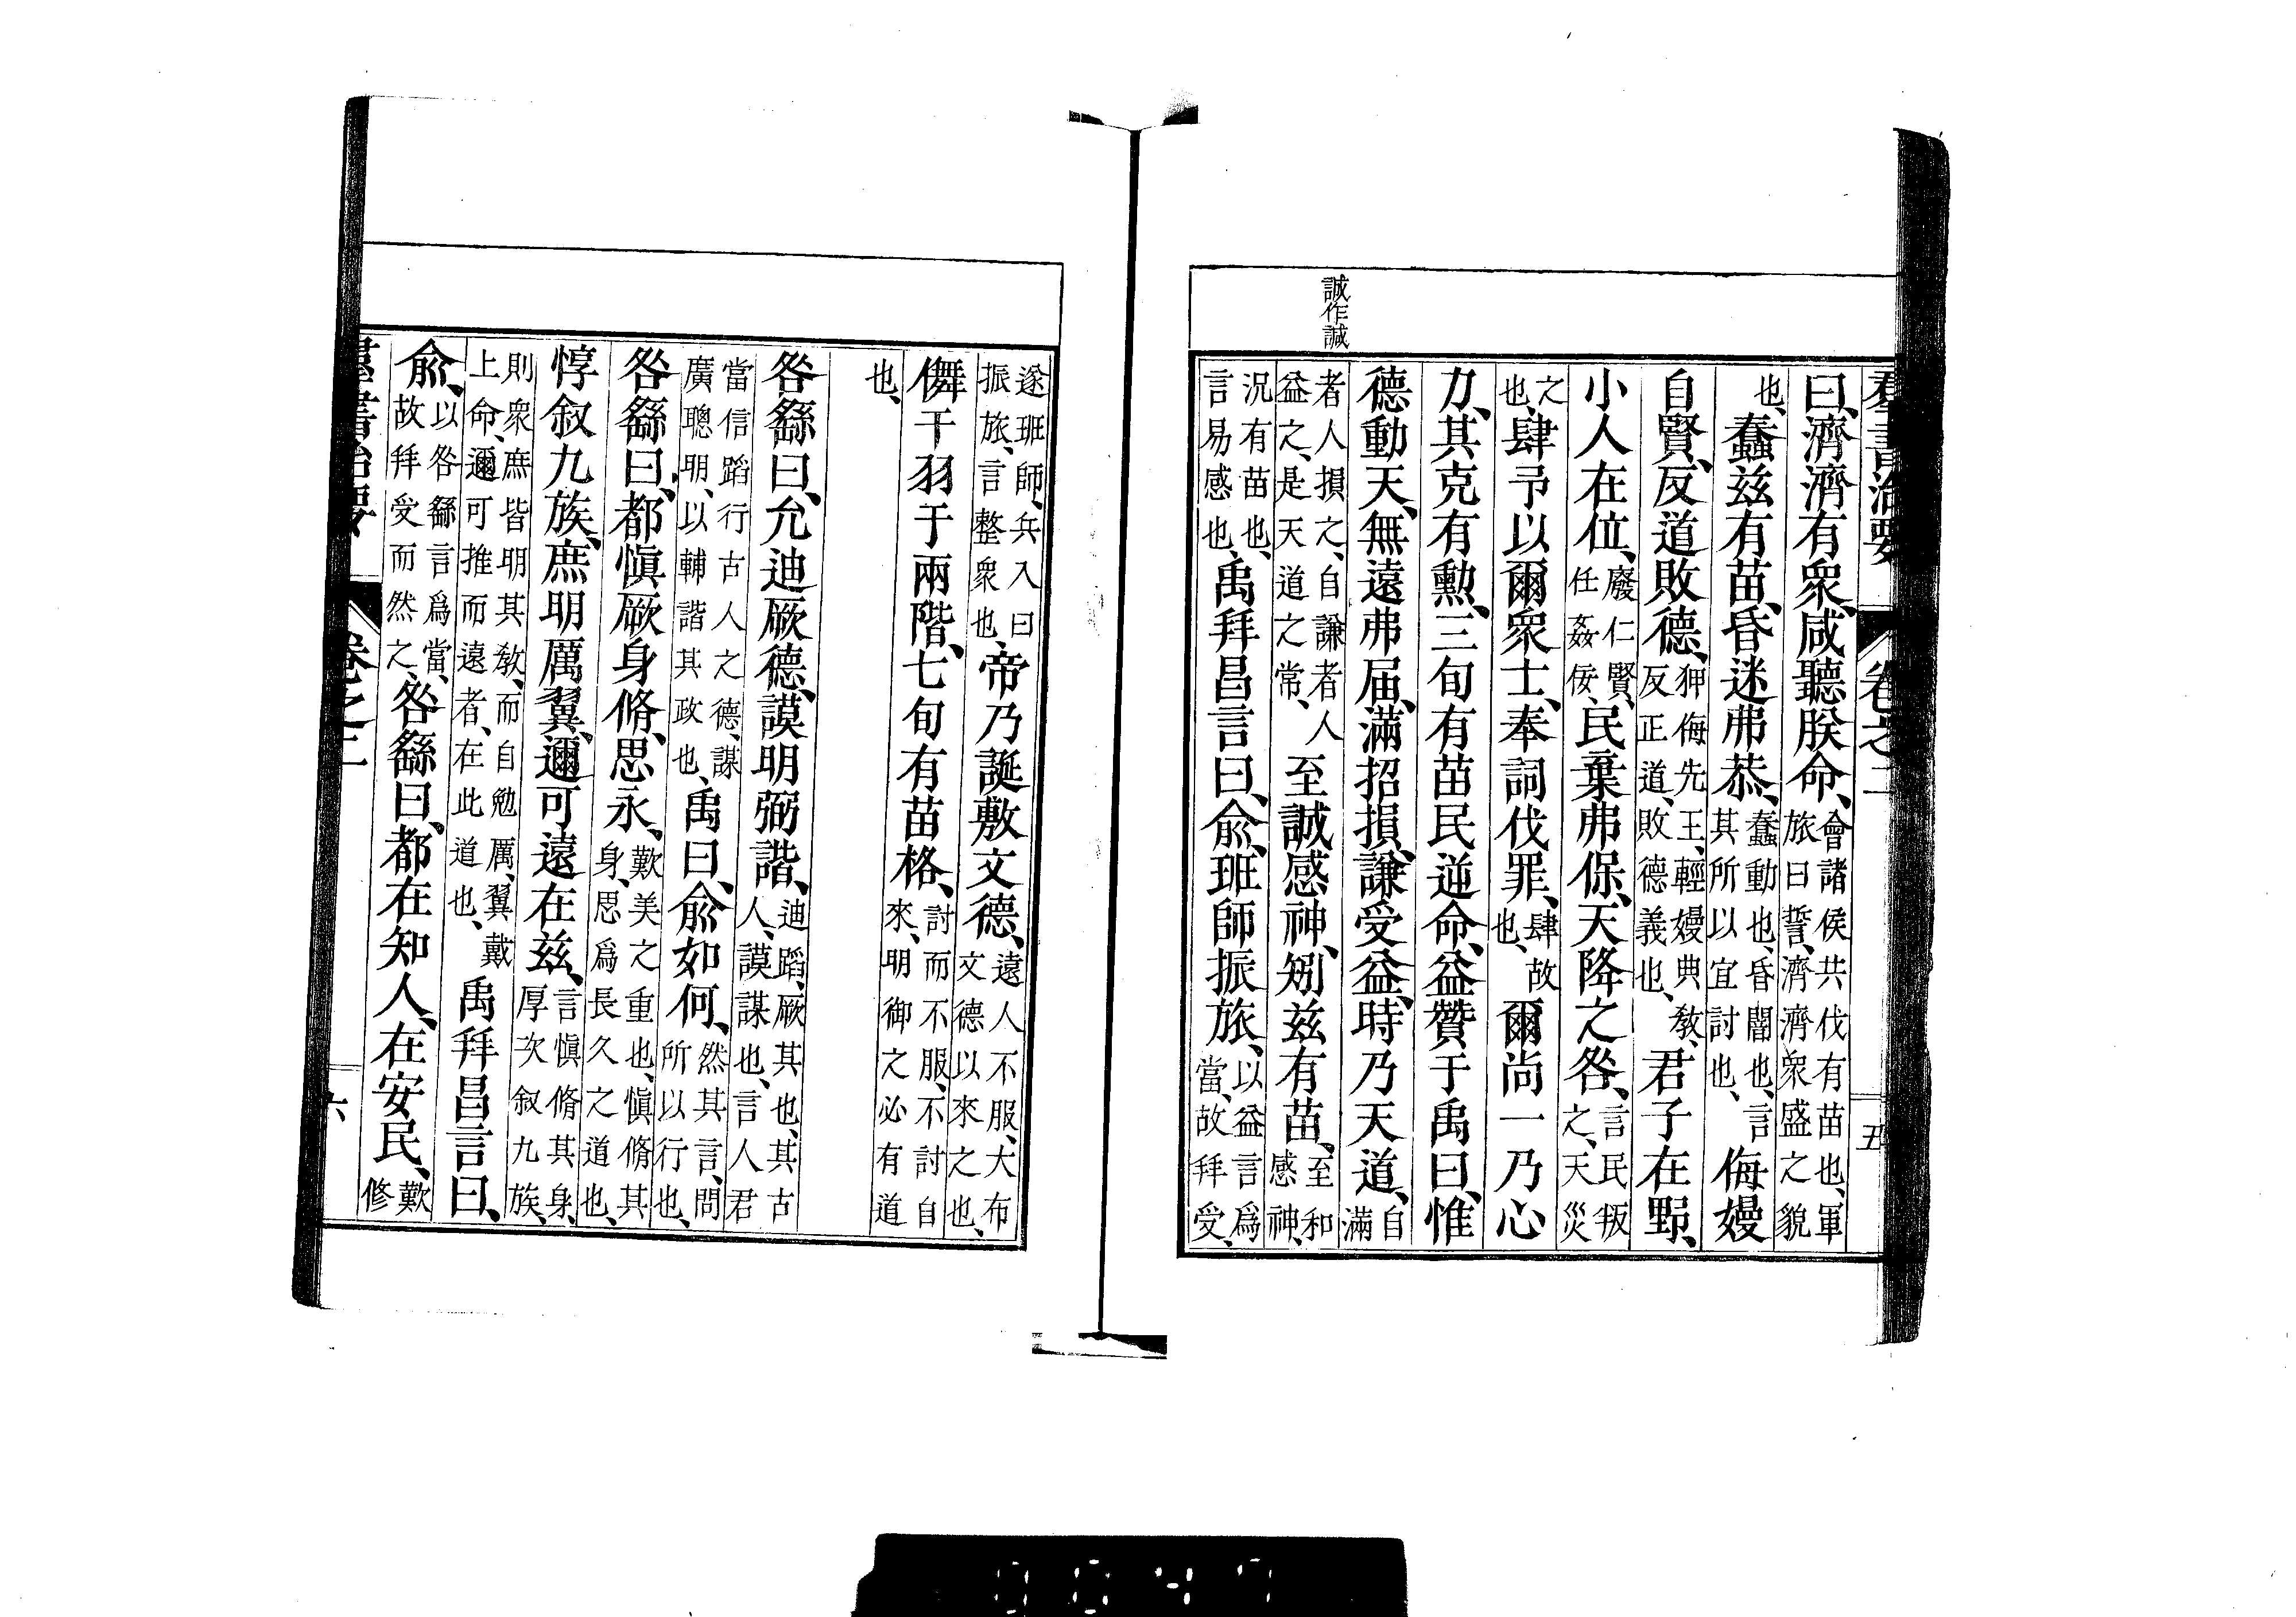 羣書治要 卷之二 五
曰、濟濟有衆、咸聽朕命、會諸侯共伐有苗也、軍旅曰誓、濟濟衆盛之貌
也、蠢茲有苗、昏迷弗恭、蠢動也、昏闇也、言其所以宜討也、侮嫚
自賢、反道敗德、狎侮先王、輕嫚典敎、反正道、敗德義也、君子在野、
小人在位、廢仁賢、任姦佞、民棄弗保、天降之咎、言民叛之、天災
之也、肆予以爾衆士、奉詞伐罪、肆故也、爾尚一乃心
力、其克有勳、三旬有苗民逆命、益贊于禹曰、惟
德動天、無遠弗届、滿招損、謙受益、時乃天道、自滿
誠作諴
者人損之、自謙者人益之、是天道之常、至誠感神、矧茲有苗、至和感神、
況有苗也、言易感也、禹拜昌言曰、兪、班師振旅、以益言爲當、故拜受、
遂班師、兵入曰振旅、言整衆也、帝乃誕敷文德、遠人不服、大布文德以來之也、
儛干羽于兩階、七旬有苗格、討而不服、不討自來、明御之必有道
也、
咎繇曰、允迪厥德、謨明弼諧、迪蹈、厥其也、其古人、謨謀也、言人君
當信蹈行古人之德、謀廣聰明、以輔諧其政也、禹曰、兪如何、然其言、問所以行也、
咎繇曰、都愼厥身脩、思永、歎美之重也、愼脩其身、思爲長久之道也、
惇叙九族、庶明厲翼、邇可遠在茲、言愼脩其身、厚次叙九族、
則衆庶皆明其敎、而自勉厲、翼戴上命、邇可推而遠者、在此道也、禹拜昌言曰、
兪、以咎繇言爲當、故拜受而然之、咎繇曰、都在知人、在安民、歎修
羣書治要 卷之二 六